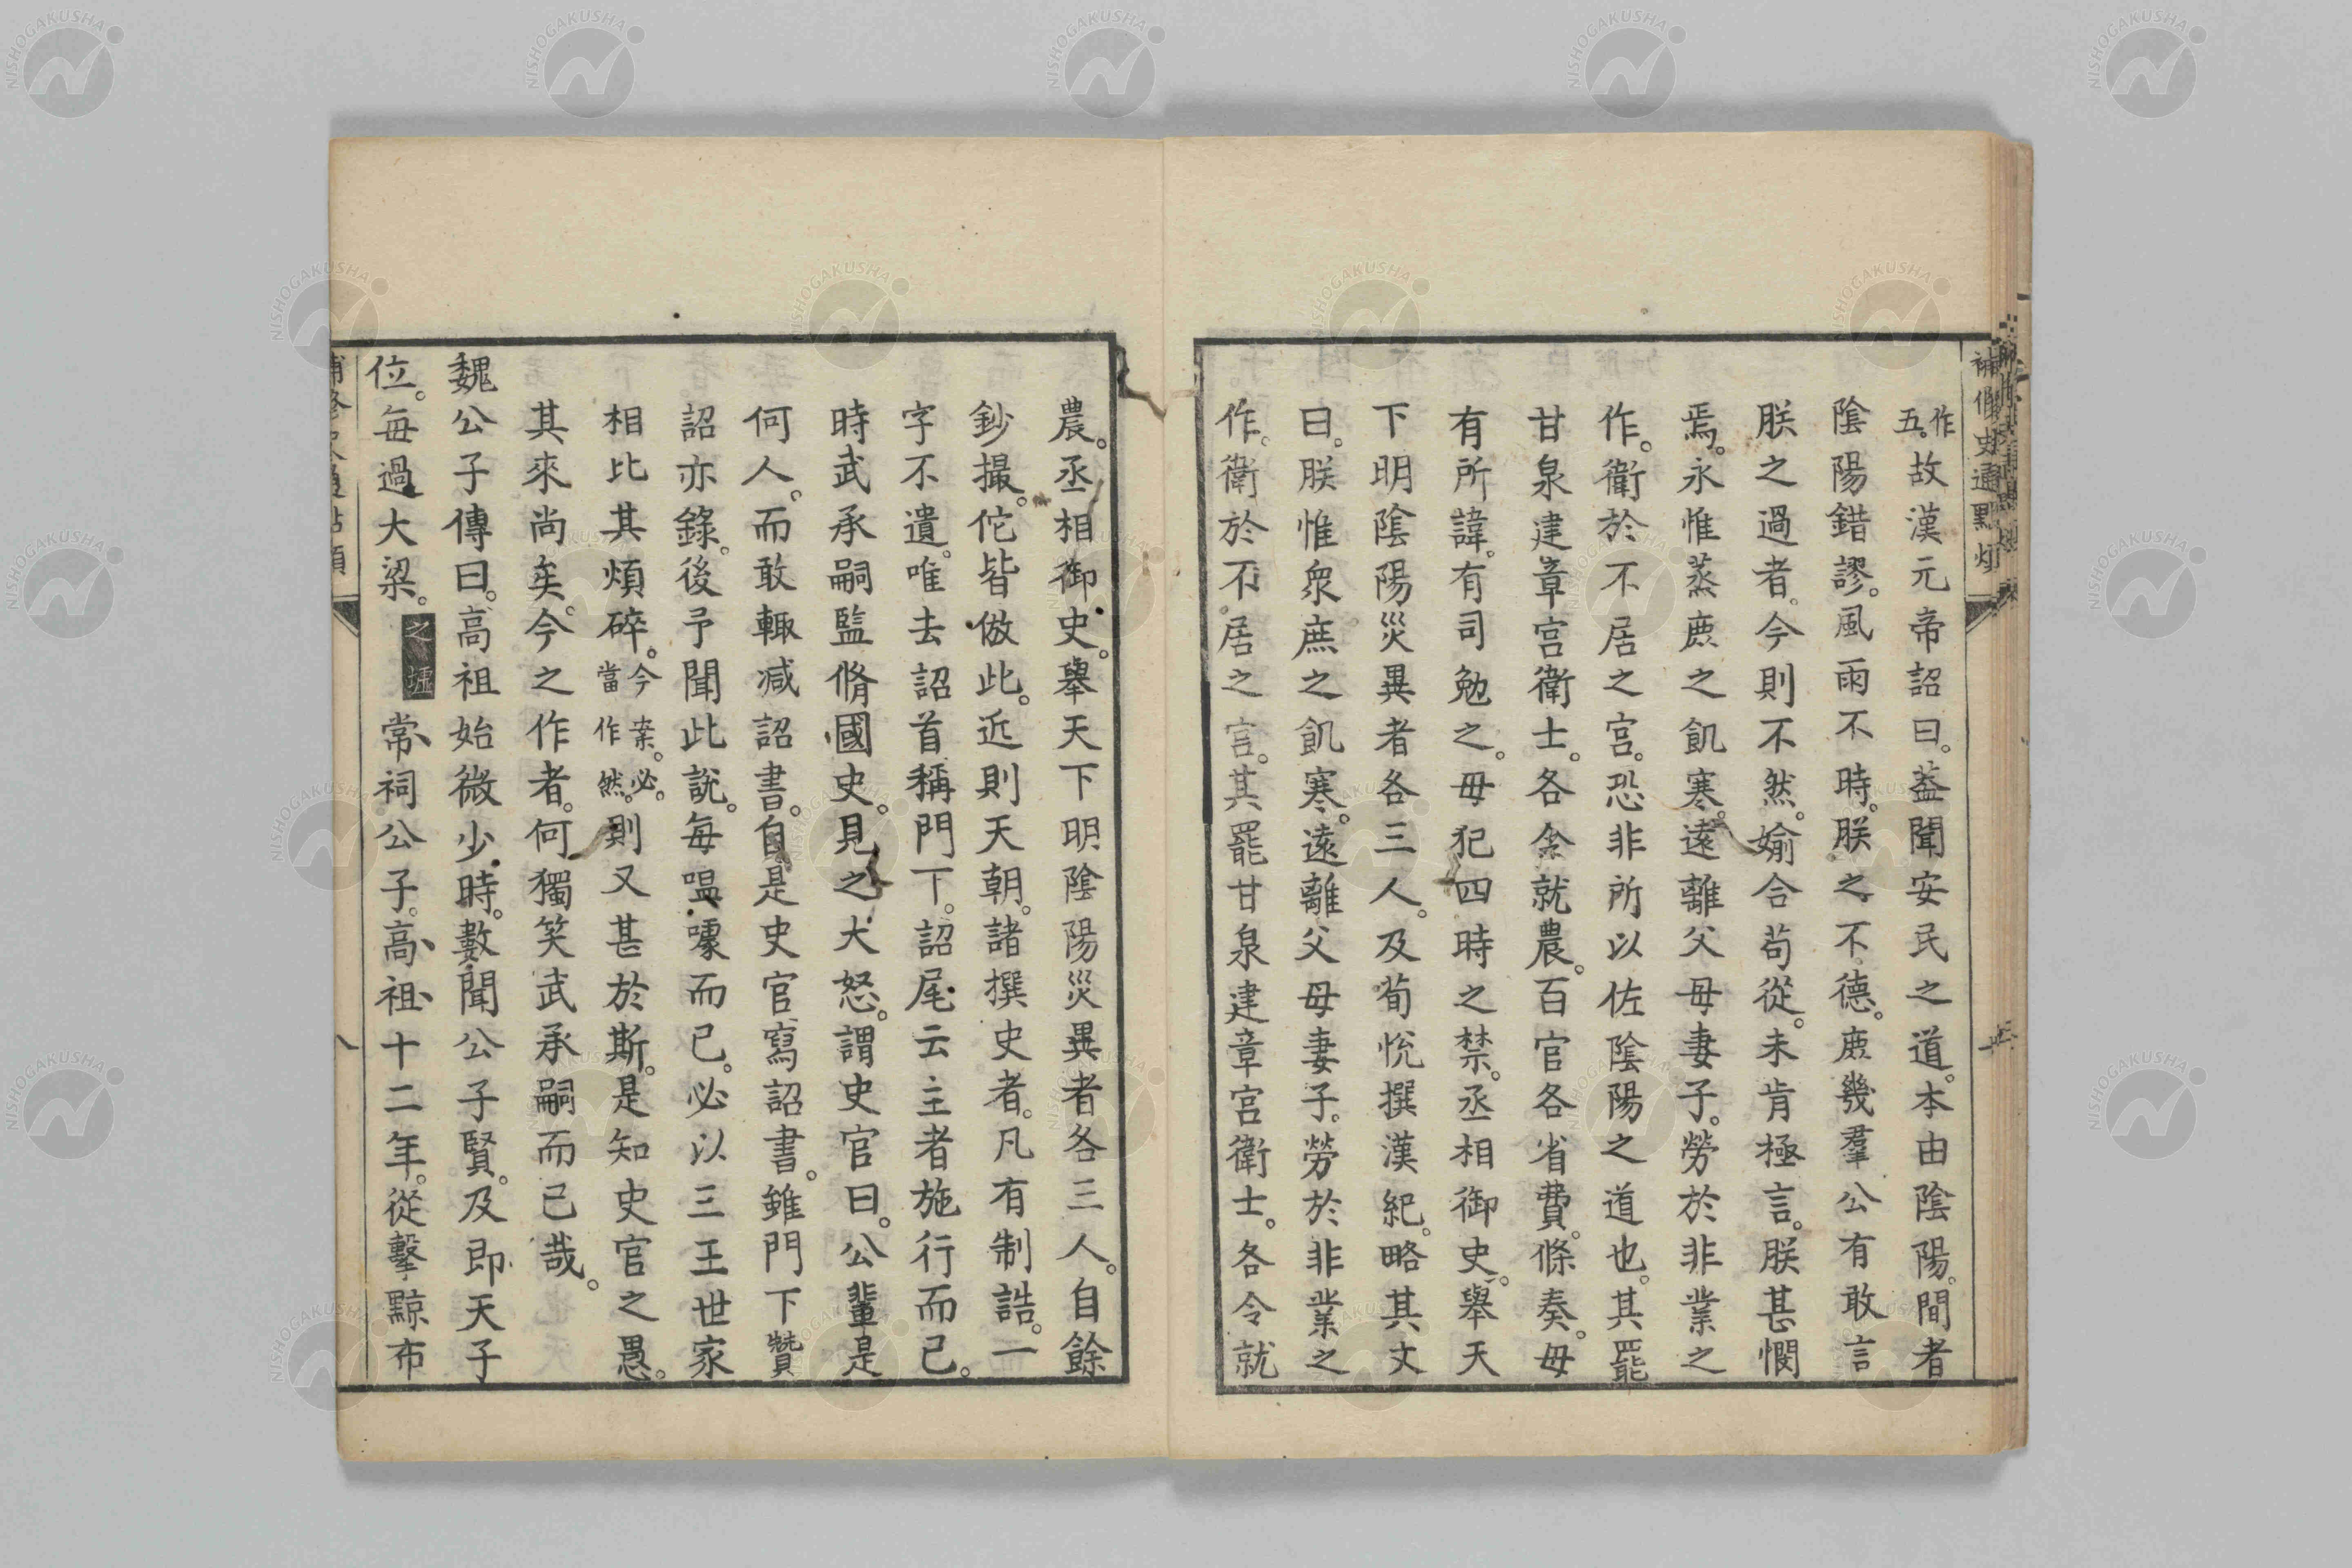 補修史通點煩
作五。故漢元帝詔曰。葢聞安民之道。本由陰陽。間者
陰陽錯謬。風雨不時。朕之不德。庶幾羣公有敢言
朕之過者。今則不然。媮合苟從。未肯極言。朕甚憫
焉。永惟蒸庶之飢寒。遠離父母妻子。勞於非業之
作。衛於不居之宮。恐非所以佐陰陽之道也。其罷
甘泉建章宮衛士。各令就農。百官各省費。條奏。毋
有所諱。有司勉之。毋犯四時之禁。丞相御史。舉天
下明陰陽災異者各三人。及荀悅撰漢紀。略其文
曰。朕惟衆庶之飢寒。遠離父母妻子。勞於非業之
作。衛於不居之宮。其罷甘泉建章宮衛士。各令就
農。丞相御史。舉天下明陰陽災異者各三人。自餘
鈔撮。佗皆倣此。近則天朝。諸撰史者。凡有制誥。一
字不遺。唯去詔首稱門下。詔尾云主者施行而已。
時武承嗣監脩國史。見之大怒。謂史官曰。公輩是
何人。而敢輒減詔書。自是史官寫詔書。雖門下贊
詔亦錄。後予聞此説。每嗢噱而已。必以三王世家
相比其煩碎。今案。必當作然。則又甚於斯。是知史官之愚。
其來尚矣。今之作者。何獨笑武承嗣而已哉。
魏公子傳曰。高祖始微少。時。數聞公子賢。及即天子
位。每過大梁。之墟常祠公子。高祖十二年。從擊黥布
八
NISHOGAKUSHA